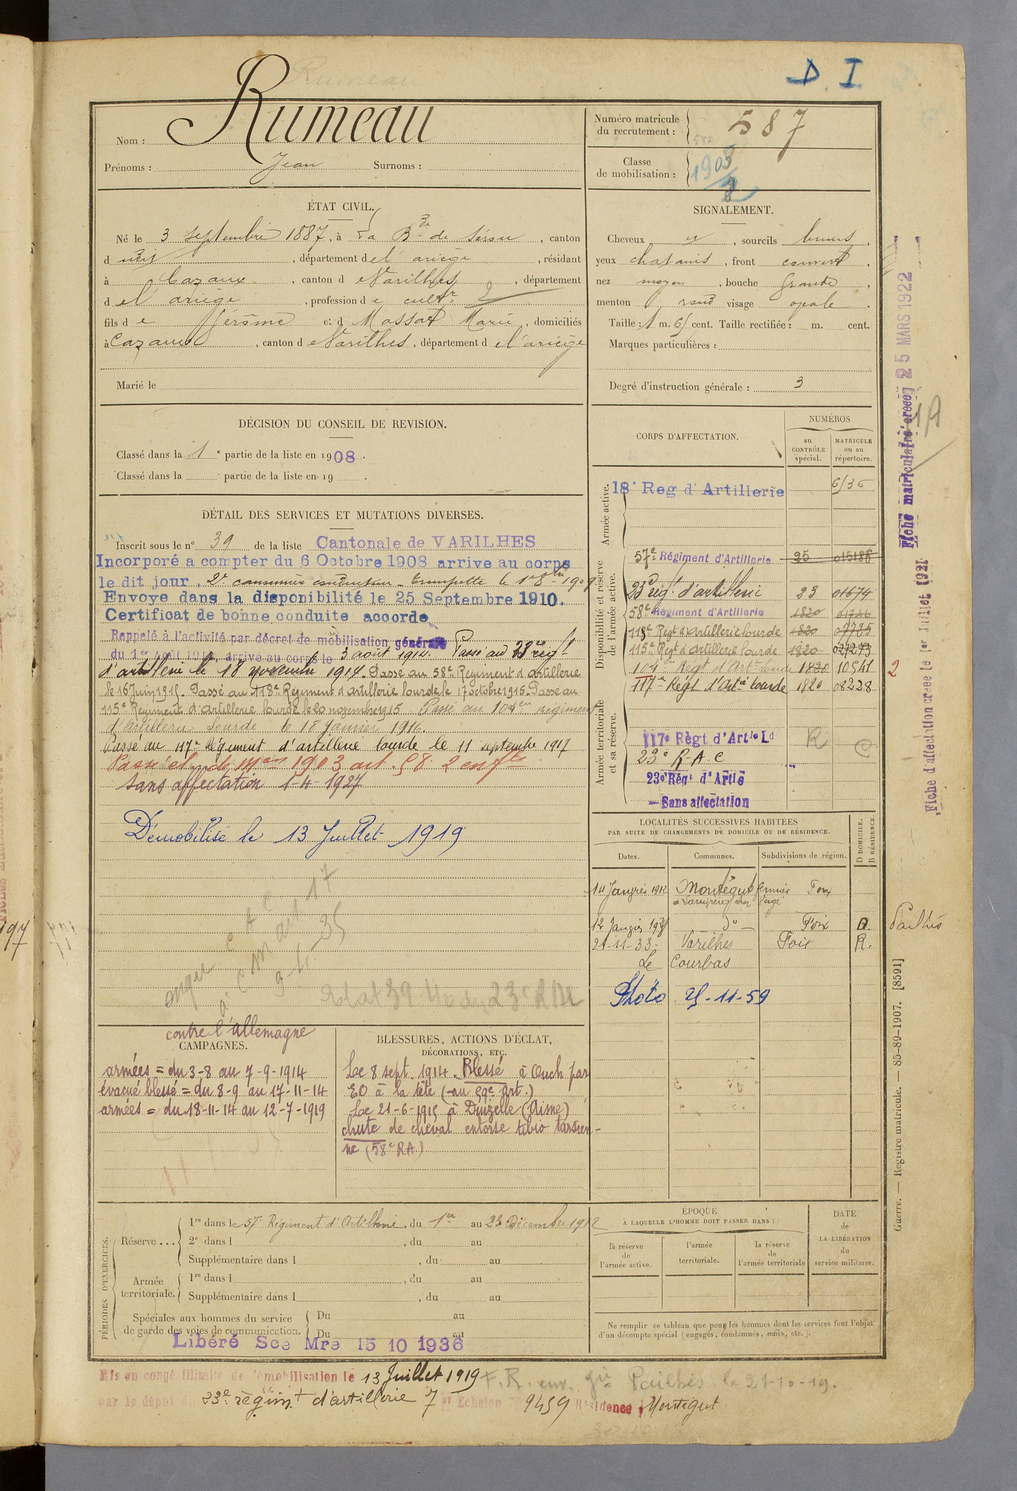 D. I.
Rumeau
Nom : Rumeau
Prénoms : Jean Surnoms :
Numéro matricule du recrutement : 587
Classe de mobilisation : 1903
2
ÉTAT CIVIL.
Né le 3 septembre 1887, à La Bde de Sérou, canton
d udit, département de l'ariège, résidant
à Cazaux, canton d e Varilhes, département
d e l'ariège, profession d e cultr
fils d e Jérôme et d Massat Marie, domiciliés
à Cazaux, canton d e Varilhes, département d e l'ariège
Marié le
SIGNALEMENT.
Cheveux et, sourcils bruns,
yeux chatains, front couvert
nez moyen, bouche grande,
menton rond visage ovale
Taille : 1 m. 61 cent. Taille rectifiée : m. cent.
Marques particulières :
Degré d'instruction générale : 3
DÉCISION DU CONSEIL DE REVISION.
Classé dans la 1e partie de la liste en 1908.
Classé dans la partie de la liste en 19 .
DÉTAIL DES SERVICES ET MUTATIONS DIVERSES.
Inscrit sous le n° 39 de la liste Cantonale de VARILHES
Incorporé a compter du 6 Octobre 1908 arrive au corps
le dit jour, 2e canonnier conducteur le 1er 8bre 1909
Envoye dans la disponibilité le 25 Septembre 1910.
Certificat de bonne conduite accorde
Rappelé à l'activité par décret de mobilisation générale Passé au 23me régt
du 1er Août 1914, arrive au corps le 3 août 1914.
d'artillerie le 18 novembre 1914. Passé au 58e Régiment d'artillerie
le 16 Juin 1915. Passé au 118e Régiment d'artillerie lourde le 17 octobre 1915. Passé au
115e Régiment d'artillerie lourde le 20 novembre 15 Passé au 104me régiment
d'artillerie lourde le 18 Janvier 1916.
Passé au 117e Régiment d'artillerie lourde le 11 septembre 1917
Passé cl. de Mon 1903 art. 58 2 enfts
Sans affectation 1-4-1927
Démobilisé le 13 Juillet 1919
CORPS D'AFFECTATION.
NUMÉROS
au CONTRÔLE spécial.
MATRICULE ou au répertoire.
Armée active.
18e Reg d'Artillerie
Disponibilité et réserve de l'armée active.
57e Régiment d'Artillerie 35 015128
23e Régt d'artillerie 23 01674
58e Régiment d'Artillerie 1820
118e Regt d'artillerie lourde 1820
115e Regt d'artillerie lourde 1820
104e Regt d'Art lourde 1820 10541
117e Régt d'Artie lourde 1820 08228
2
Armée territoriale et sa réserve.
117e Règt d'Artie Ld R C
23e R.A.C
23e Régt d'Artie
Sans affectation
LOCALITÉS SUCCESSIVES HABITÉES
PAR SUITE DE CHANGEMENTS DE DOMICILE OU DE RÉSIDENCE.
Dates. Communes. Subdivisions de région. D DOMICILE. R RÉSIDENCE.
14 Janvier 1912 Montégut Foix
12 Janvier 19 do Foix R. Pailhès
21-11-33 Varilhes Foix R.
Le Courbas
Photo 25-11-59
contre l'allemagne
CAMPAGNES.
armées = du 3-8 au 7-9-1914
évacué blessé = du 8-9 au 17-11-14
armées = du 18-11-14 au 12-7-1919
BLESSURES, ACTIONS D'ÉCLAT,
DÉCORATIONS, ETC.
Le 8 sept. 1914. Blessé à Auch par
EO à la tête (au 57e Art.)
Le 21-6-1915 à Duizelle (Aisne)
chute de cheval entorse tibio tarsien-
ne (58e RA)
PÉRIODES D'EXERCICES.
Réserve ...
1re dans le 57e Régiment d'Artillerie, du 1er au 23 Décembre 1912
2e dans l , du au
Supplémentaire dans l , du au
Armée territoriale.
1re dans l , du au
Supplémentaire dans l , du au
Spéciales aux hommes du service de garde des voies de communication.
Du au
Du au
Libéré Sce Mre 15 10 1936
ÉPOQUE
À LAQUELLE L'HOMME DOIT PASSER DANS :
la réserve de l'armée active.
l'armée territoriale.
la réserve de l'armée territoriale
DATE de LA LIBÉRATION du service militaire.
Ne remplir ce tableau que pour les hommes dont les services font l'objet
d'un décompte spécial (engagés, condamnés, omis, etc.).
Mis en congé illimité de démobilisation le 13 Juillet 1919 F.R. env. gie Pailhès le 21-10-19.
par le dépôt 23e régimt d'artillerie 7 er Echelon 9459 Résidence Montégut
Fiche matriculaire créée 25 MARS 1922
Fiche d'affectation créée le 1er Juillet 1921
Guerre. — Registre matricule. — 85-89-1907. [8591]